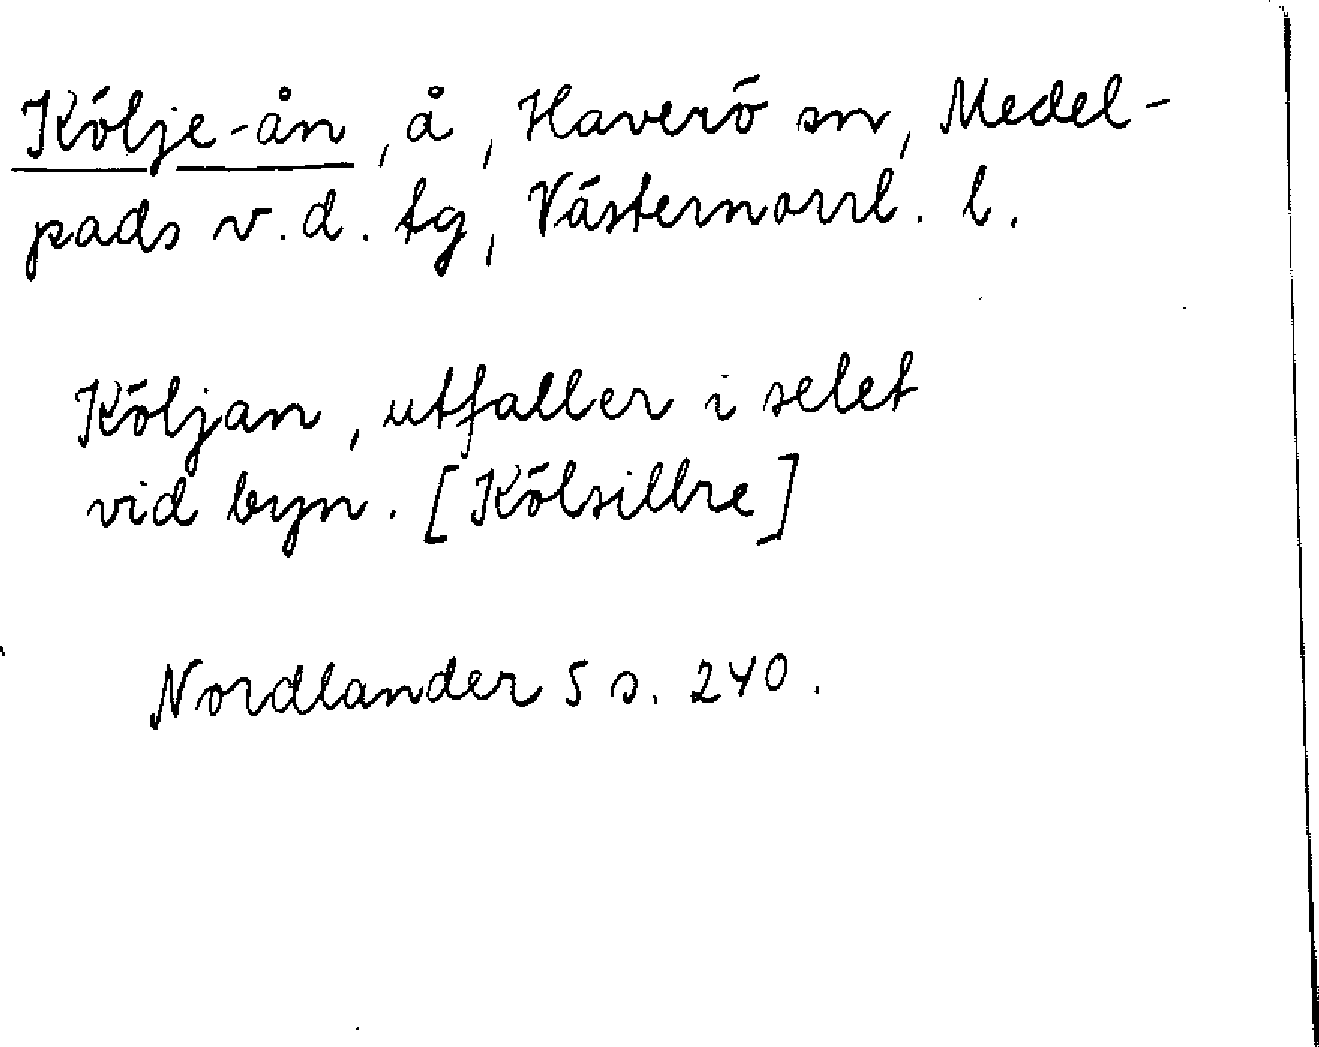 Kölje-ån, å, Haverö sn, Medel-
pads v. d. tg, Västernorrl. l.
Köljan, utfaller i selet
vid byn. [Kölsillre]
Nordlander 5 s. 240.